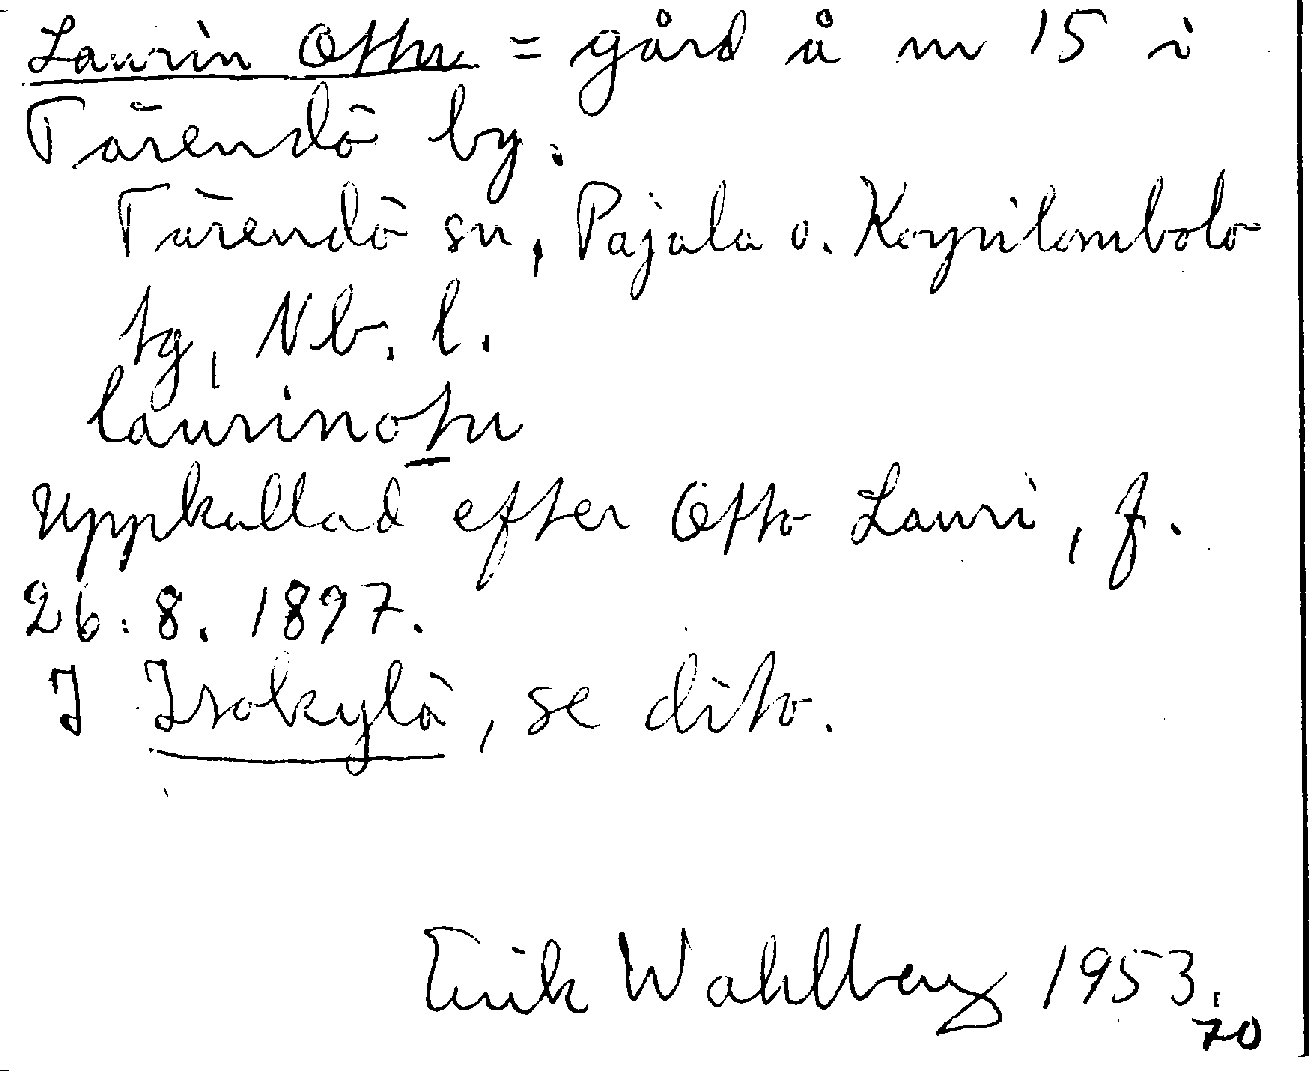 Laurin Ottu = gård å nr 15 i
Tärendö by.
Tärendö sn, Pajala o. Korpilombolo
tg, Nb. l.
laurinotu
Uppkallad efter Otto Lauri, f.
26.8.1897.
I Isokylä, se dito.
Erik Wahlberg 1953.
70